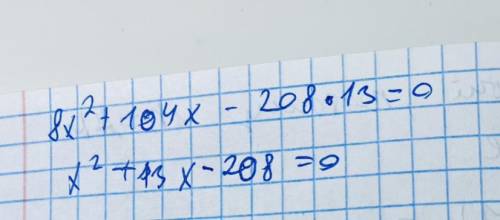 8x² + 104x - 208 • 13 = 0
x² + 13x - 208 = 0